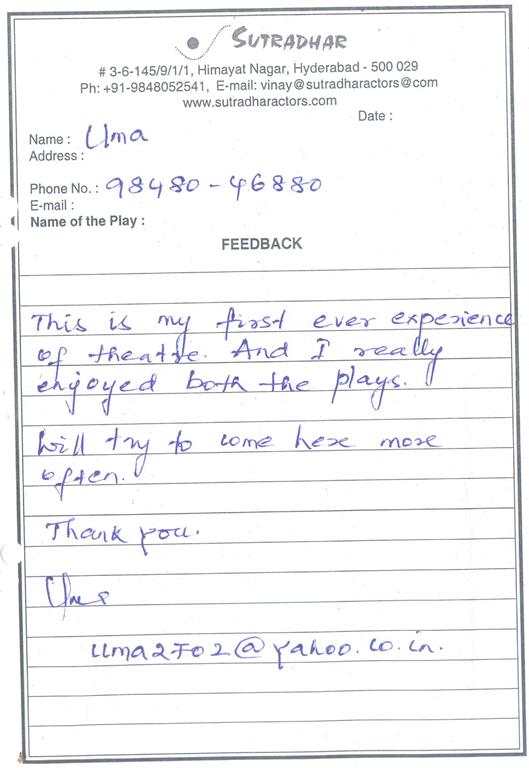 SUTRADHAR
# 3-6-145/9/1/1, Himayat Nagar, Hyderabad - 500 029
Ph: +91-9848052541, E-mail: vinay@sutradharactors@com
www.sutradharactors.com
Date :
Name : Uma
Address :
Phone No. : 98480-46880
E-mail :
Name of the Play :
FEEDBACK
This is my first ever experience
of theatre. And I really
enjoyed both the plays.
Will try to come here more
often.
Thank you.
Uma
uma2702@yahoo.co.in.